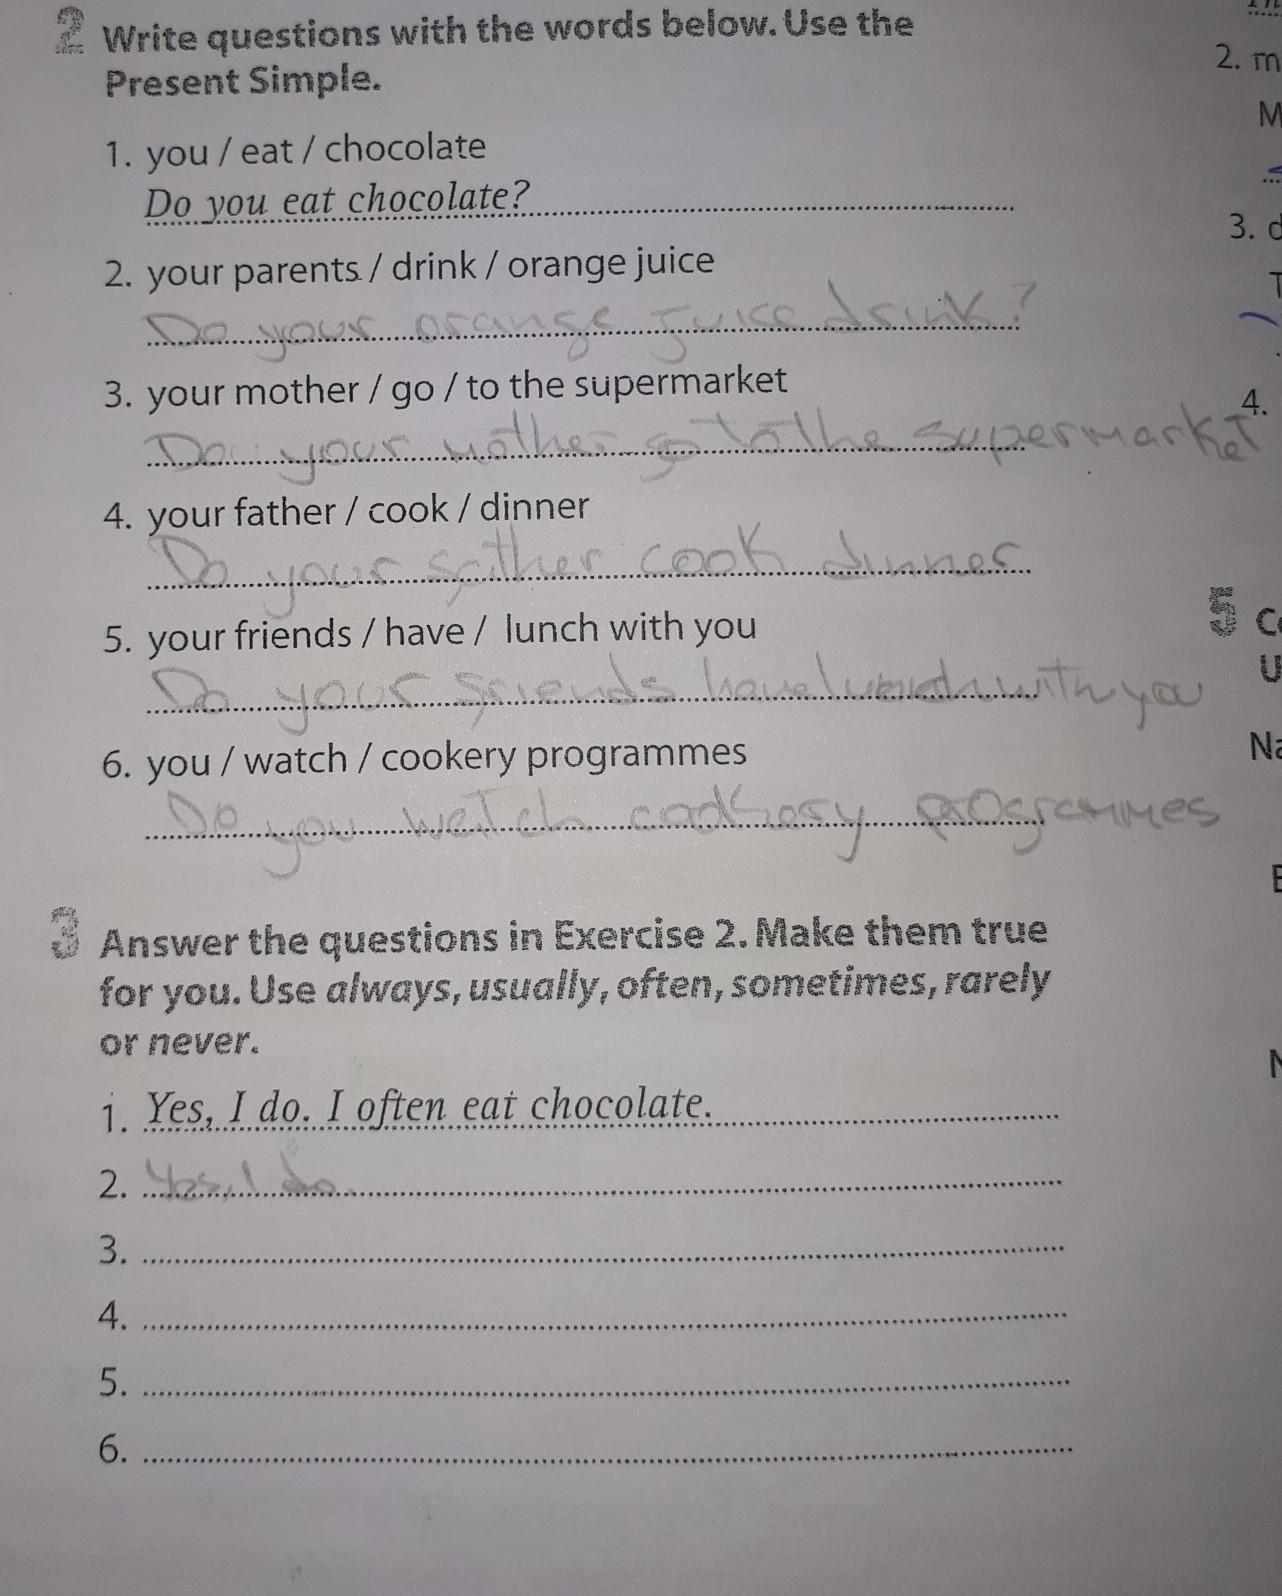 2 Write questions with the words below. Use the
Present Simple.
1. you / eat / chocolate
Do you eat chocolate?
2. your parents / drink / orange juice
Do your orange juice drink?
3. your mother / go / to the supermarket
Do your mother go to the supermarket
4. your father / cook / dinner
Do your father cook dinner
5. your friends / have / lunch with you
Do your friends have with you
6. you / watch / cookery programmes
Do you programmes
3 Answer the questions in Exercise 2. Make them true
for you. Use always, usually, often, sometimes, rarely
or never.
1. Yes, I do. I often eat chocolate.
2. Yes, I do.
3.
4.
5.
6.
2. m
M
3. d
T
4.
5 C
U
Na
E
N